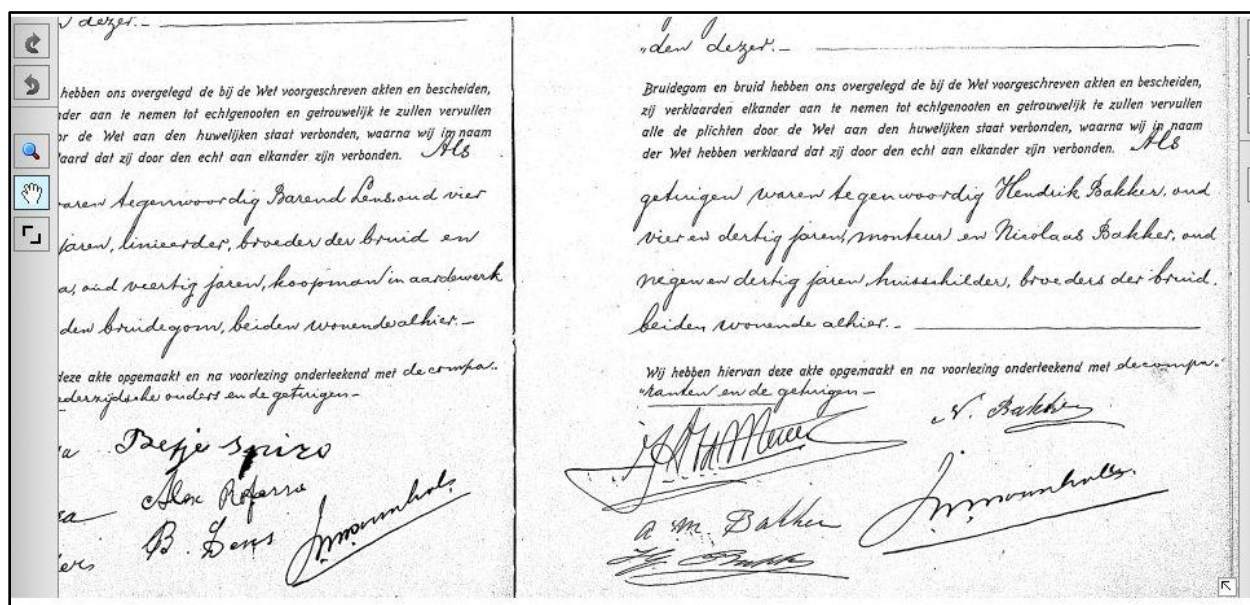 dezer.-
hebben ons overgelegd de bij de Wet voorgeschreven akten en bescheiden,
nder aan te nemen tot echtgenooten en getrouwelijk te zullen vervullen
or de Wet aan den huwelijken staat verbonden, waarna wij in naam
laard dat zij door den echt aan elkander zijn verbonden. Als
waren tegenwoordig Barend Lens, oud vier
jaren, linieerder, broeder der bruid en
a, oud veertig jaren, koopman in aardewerk
den bruidegom, beiden wonende alhier.-
deze akte opgemaakt en na voorlezing onderteekend met de compa-
ederzijdsche ouders en de getuigen-
Betje Spiro
Alex
B. Lens
"den dezer.-
Bruidegom en bruid hebben ons overgelegd de bij de Wet voorgeschreven akten en bescheiden,
zij verklaarden elkander aan te nemen tot echtgenooten en getrouwelijk te zullen vervullen
alle de plichten door de Wet aan den huwelijken staat verbonden, waarna wij in naam
der Wet hebben verklaard dat zij door den echt aan elkander zijn verbonden. Als
getuigen waren tegenwoordig Hendrik Bakker, oud
vier en dertig jaren, monteur en Nicolaas Bakker, oud
negen en dertig jaren, huisschilder, broeders der bruid,
beiden wonende alhier.-
Wij hebben hiervan deze akte opgemaakt en na voorlezing onderteekend met de compa-
"ranten en de getuigen-
N. Bakker
a m. Bakker